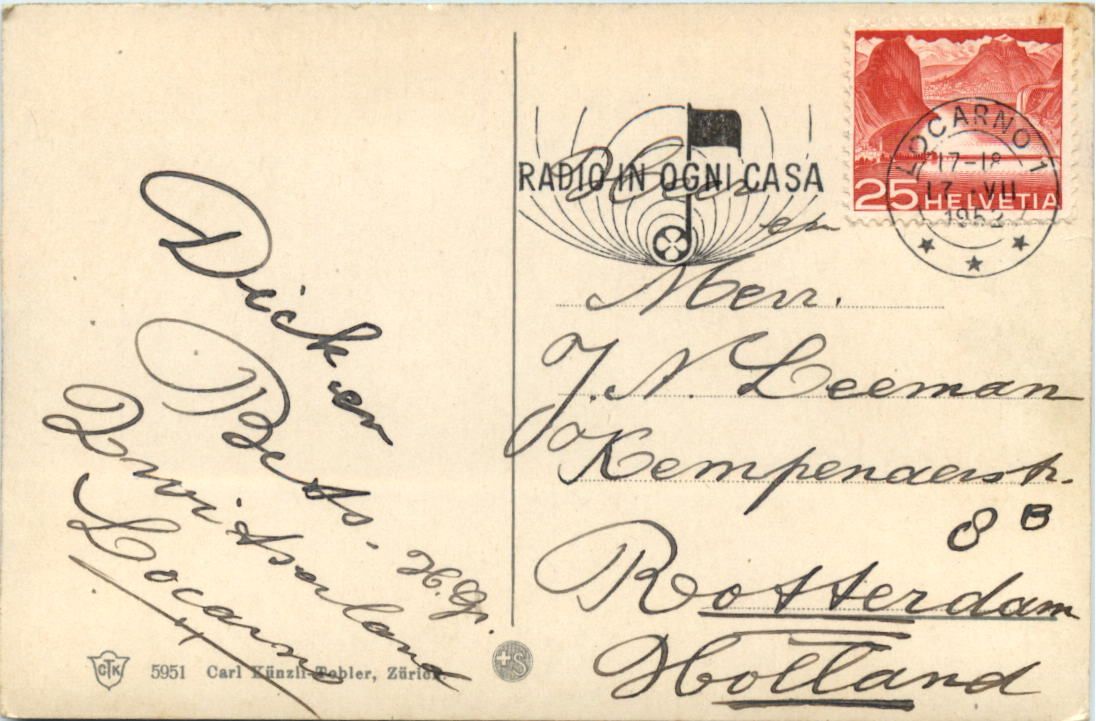 Dick en
Bets.
H.G.
Zwitserland
Locarno
5951 Carl Künzli-Tobler, Zürich.
CTK
+S
RADIO IN OGNI CASA
LOCARNO 1
17-18
17. VII
25 HELVETIA
en
Merr.
J. N. Leeman
Kempenaerstr.
8 B
Rotterdam
Holland